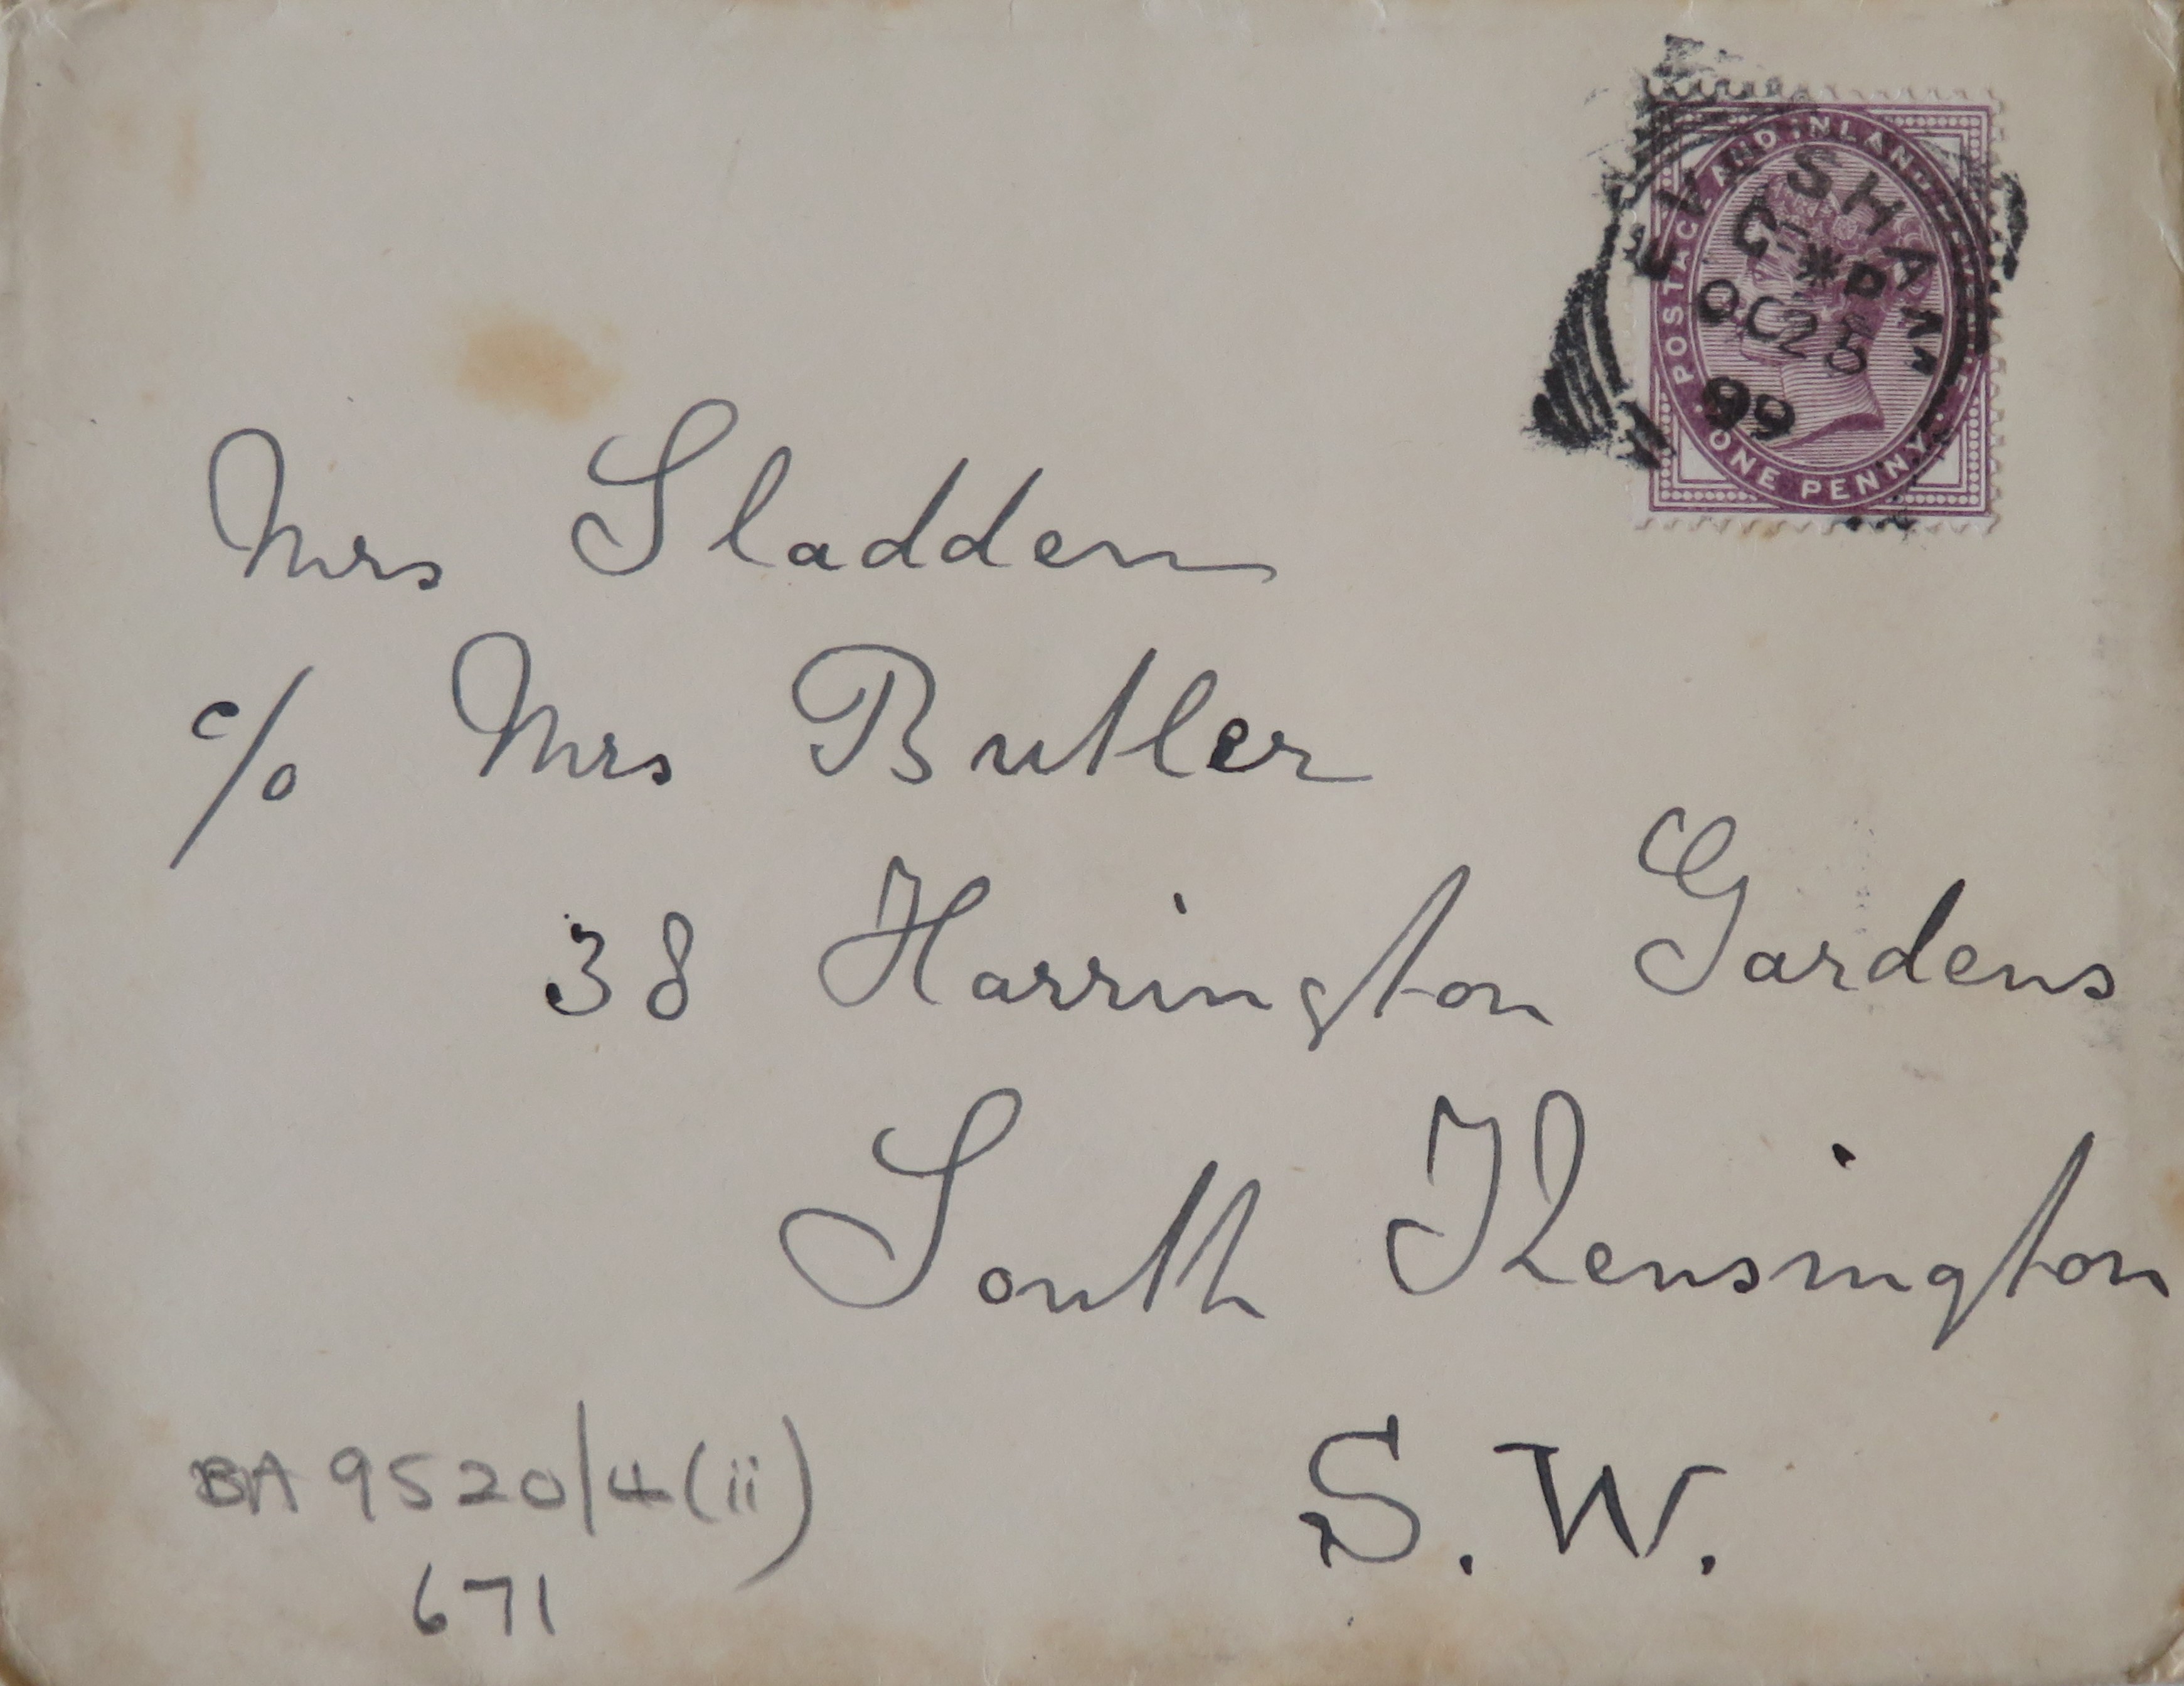 POSTAGE AND INLAND REVENUE
EVESHAM
OC 25
99
ONE PENNY
Mrs Sladden
c/o Mrs Butler
38 Harrington Gardens
South Kensington
S.W.
BA 9520/4(ii)
671